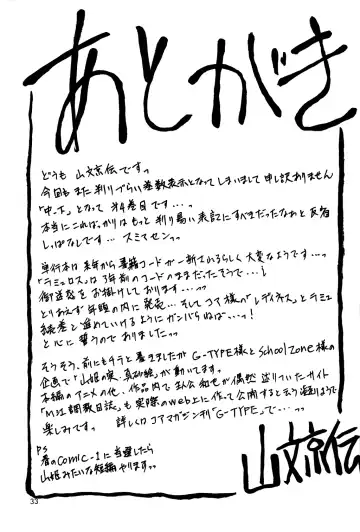 あとがき
どうも 山文京伝です。
今回もまた判りづらい巻数表示となってしまいまして申し訳ありません
「中・下」となって 第4巻目です…。
本当にこればっかりはもっと判り易い表記にすべきだったなぁと反省
しっぱなしです… スミマセンっ
単行本は来年から書籍コードが一新されるらしく大変なようです…。
「ラミュロス」は3年前のコードのままだったそうで…
御迷惑をお掛けしております…
とりあえず年頭の内に発売…そしてコア様の「レディネス」とラミュ
続巻と進めていけるようにガンバらねば…っ!
と心に誓うのでありました
そうそう、前にもチラと書きましたが G-TYPE様とSchoolZone様の
企画で「山姫の実、真砂絵」が動いてます。
本編のアニメの他、作品内で主人公和也が偶然辿りついたサイト
「M22調教日誌」も実際のweb上に作って公開すると言う辺りまで
楽しみです。 詳しくはコアマガジン刊「G-TYPE」で…
PS
春のcomic-1に当選したら
山姫みたいな短編やります。
山文京伝
33